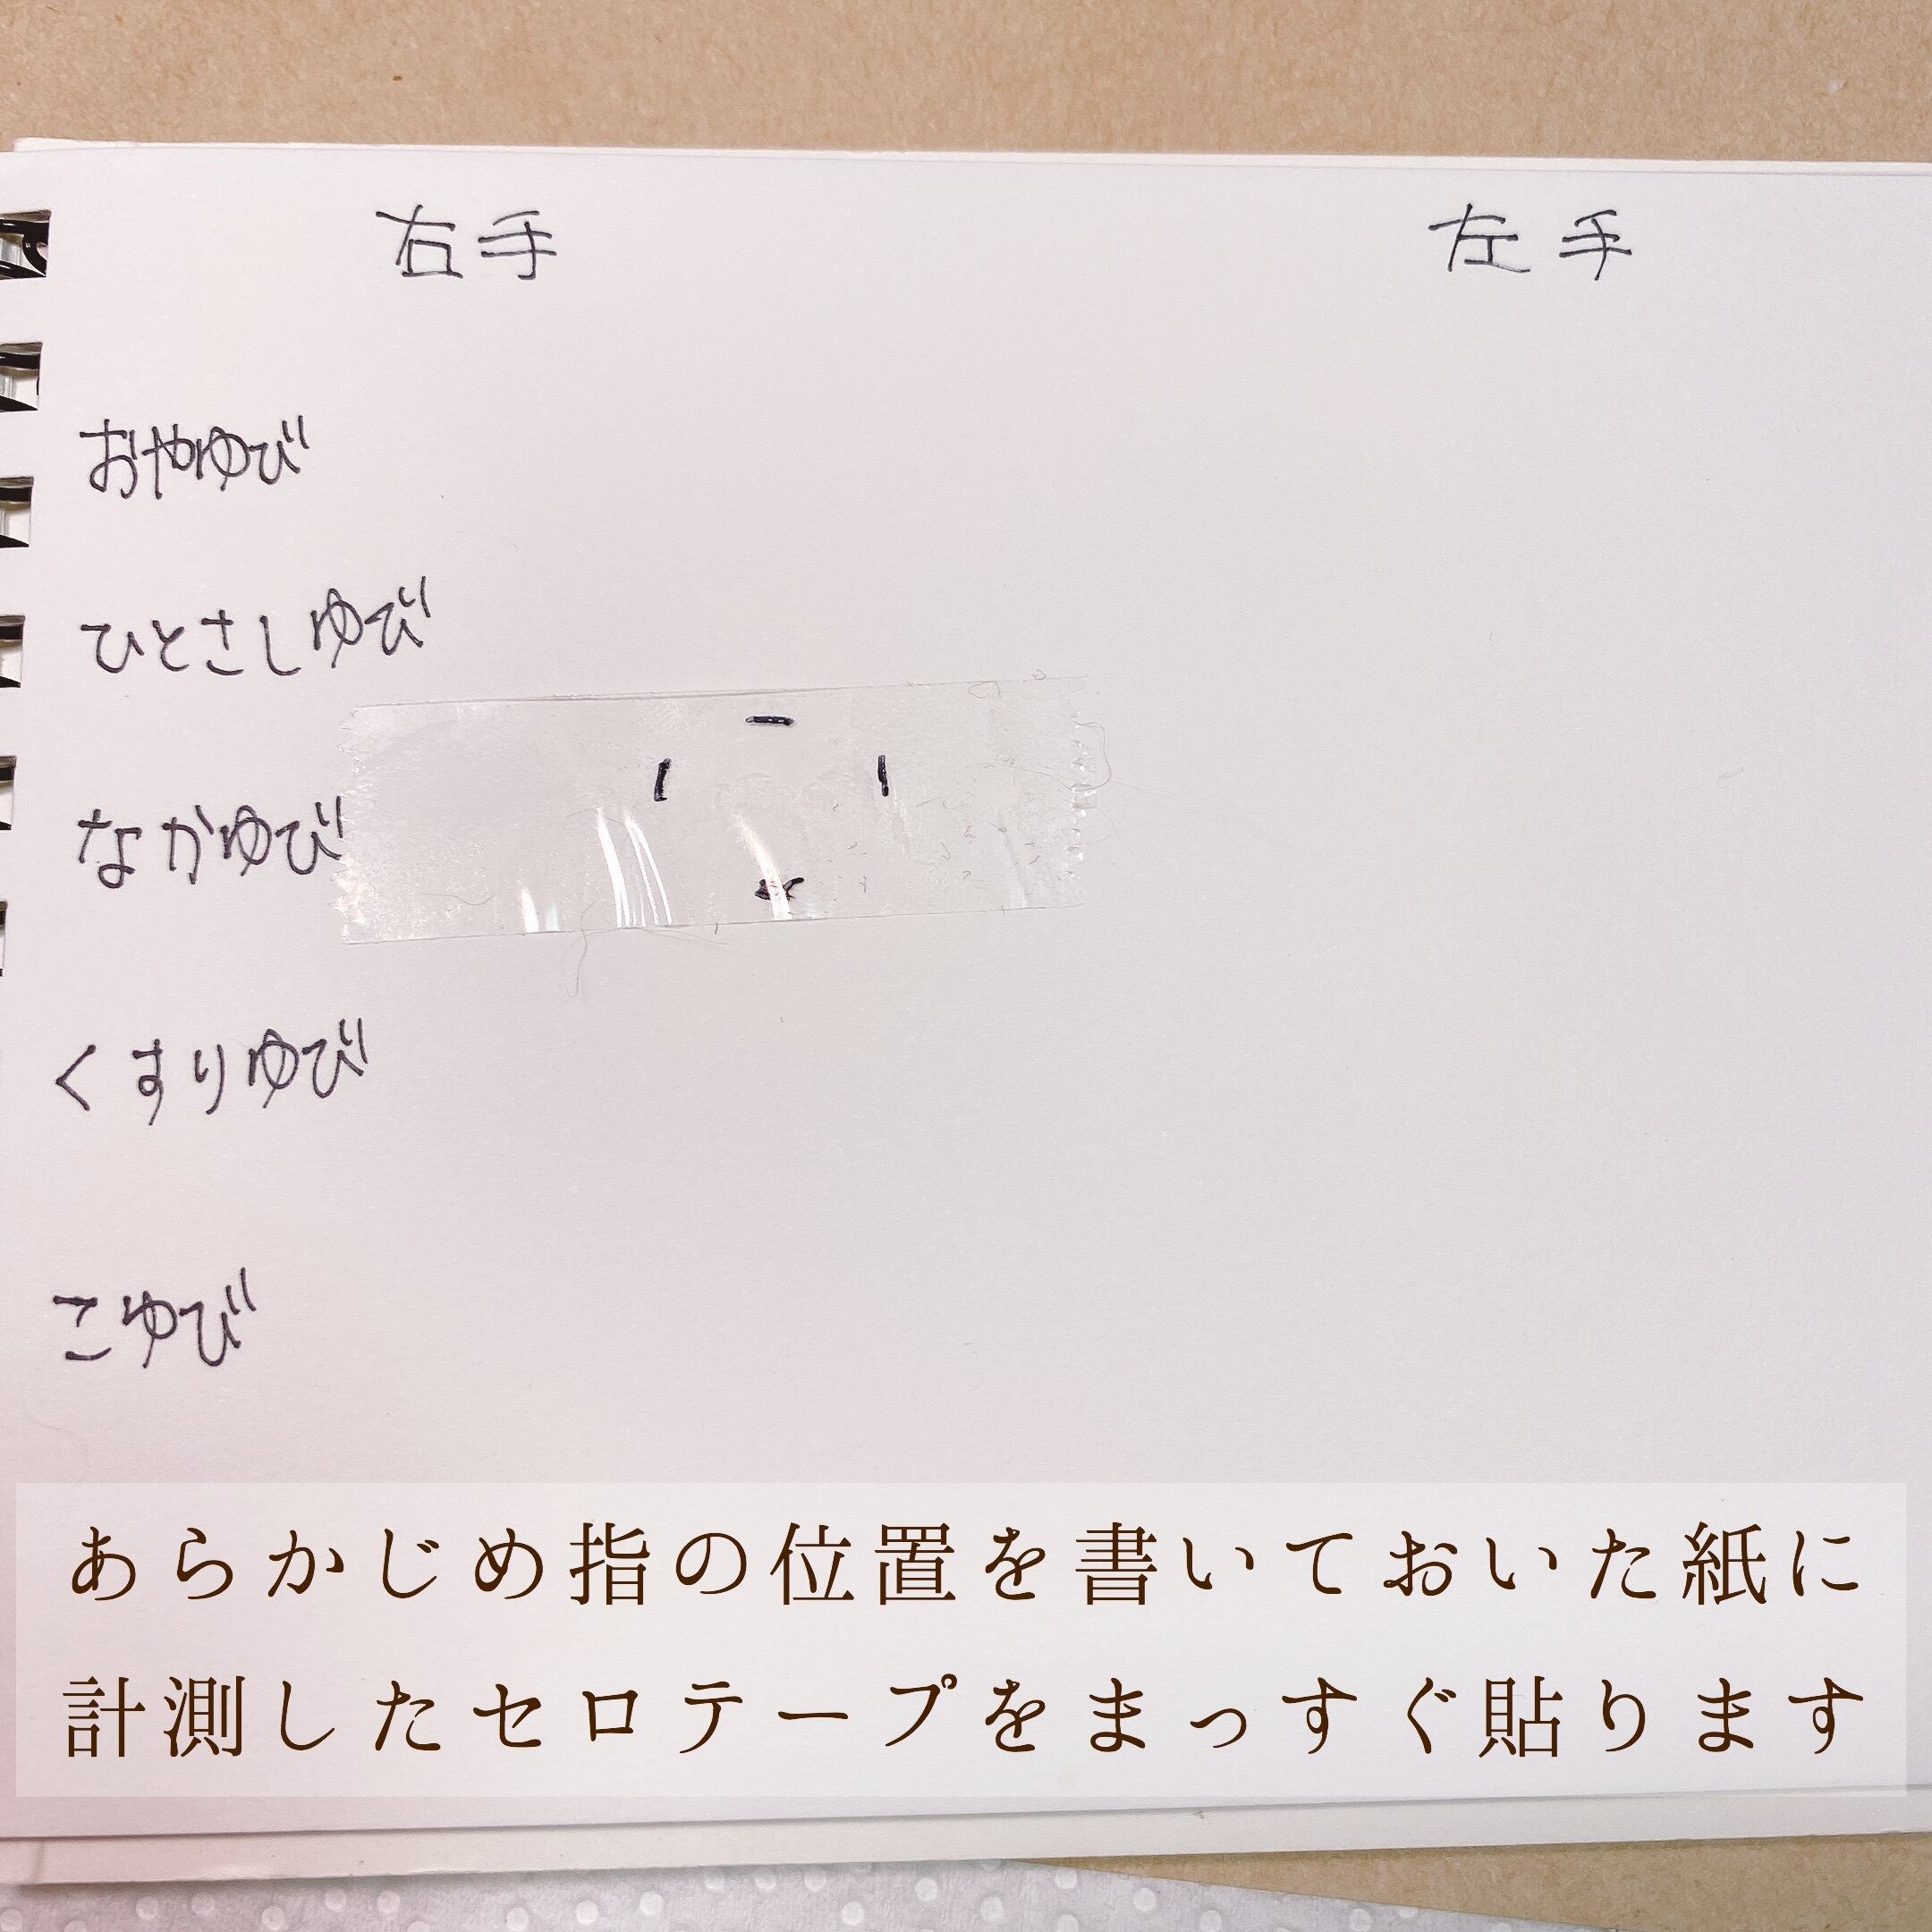 右手 左手
おやゆび
ひとさしゆび
なかゆび
くすりゆび
こゆび
あらかじめ指の位置を書いておいた紙に
計測したセロテープをまっすぐ貼ります